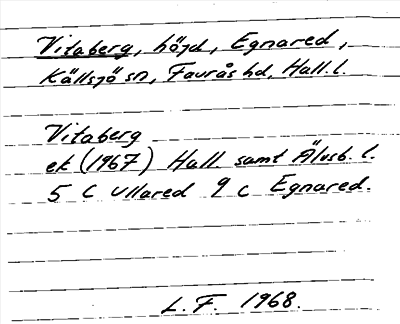 Vitaberg, höjd, Egnared,
Källsjö sn, Faurås hd, Hall. l.
Vitaberg
ek (1967) Hall. samt Älvsb. l.
5 C Ullared 9 c Egnared.
L. F. 1968.